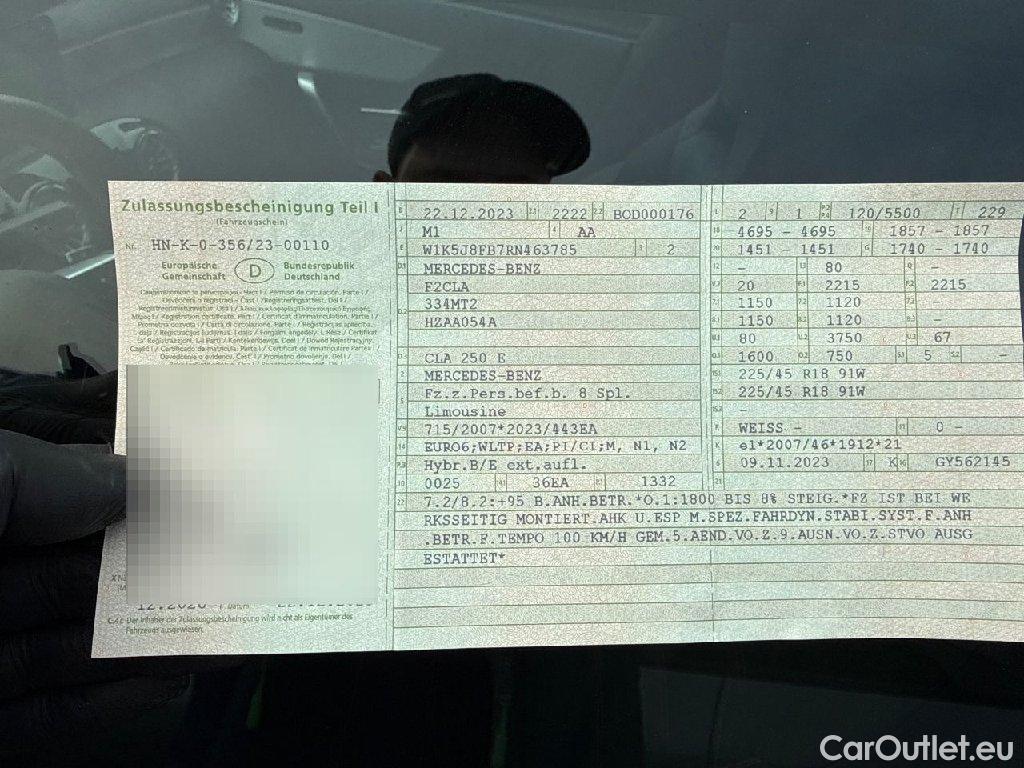 Zulassungsbescheinigung Teil I
(Fahrzeugschein)
Nr. HN-K-0-356/23-00110
Europäische Gemeinschaft
D
Bundesrepublik Deutschland
22.12.2023 2222 BOD000176
M1 AA
W1K5J8FB7RN463785 2
MERCEDES-BENZ
F2CLA
334MT2
HZAA054A
CLA 250 E
MERCEDES-BENZ
Fz.z.Pers.bef.b. 8 Spl.
Limousine
715/2007*2023/443EA
EURO6;WLTP;EA;PI/CI;M, N1, N2
Hybr.B/E ext.aufl.
0025 36EA 1332
2 1 120/5500 229
4695 - 4695 1857 - 1857
1451 - 1451 1740 - 1740
- 80 -
20 2215 2215
1150 1120
1150 1120
80 3750 67
1600 750 5 -
225/45 R18 91W
225/45 R18 91W
-
WEISS - 0 -
e1*2007/46*1912*21
09.11.2023 K GY562145
7.2/8.2:+95 B.ANH.BETR.*O.1:1800 BIS 8% STEIG.*FZ IST BEI WE
RKSSEITIG MONTIERT.AHK U.ESP M.SPEZ.FAHRDYN.STABI.SYST.F.ANH
.BETR.F.TEMPO 100 KM/H GEM.5.AEND.VO.Z.9.AUSN.VO.Z.STVO AUSG
ESTATTET*
Der Inhaber der Zulassungsbescheinigung wird nicht als Eigentümer des
Fahrzeugs ausgewiesen.
CarOutlet.eu